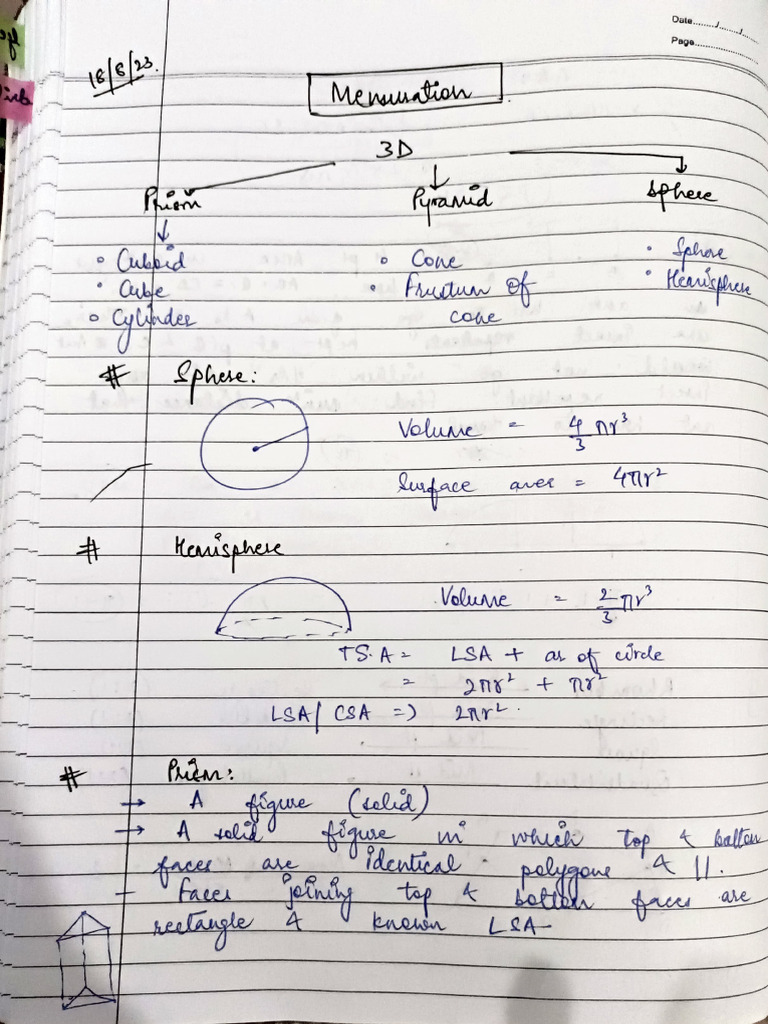 Date......../...../.....
Page....................
18/8/23.
Mensuration
3D
Prism Pyramid Sphere
• Cuboid • Cone • Sphere
• Cube • Frustum of cone • Hemisphere
• Cylinder
# Sphere:
Volume = 4/3 πr³
Surface area = 4πr²
# Hemisphere
Volume = 2/3 πr³
TS.A = LSA + ar of circle
= 2πr² + πr²
LSA/ CSA => 2πr².
# Prism:
→ A figure (solid)
→ A solid figure in which top & bottom
faces are identical polygone & ||.
- Faces joining top & bottom faces are
rectangle & known LSA-